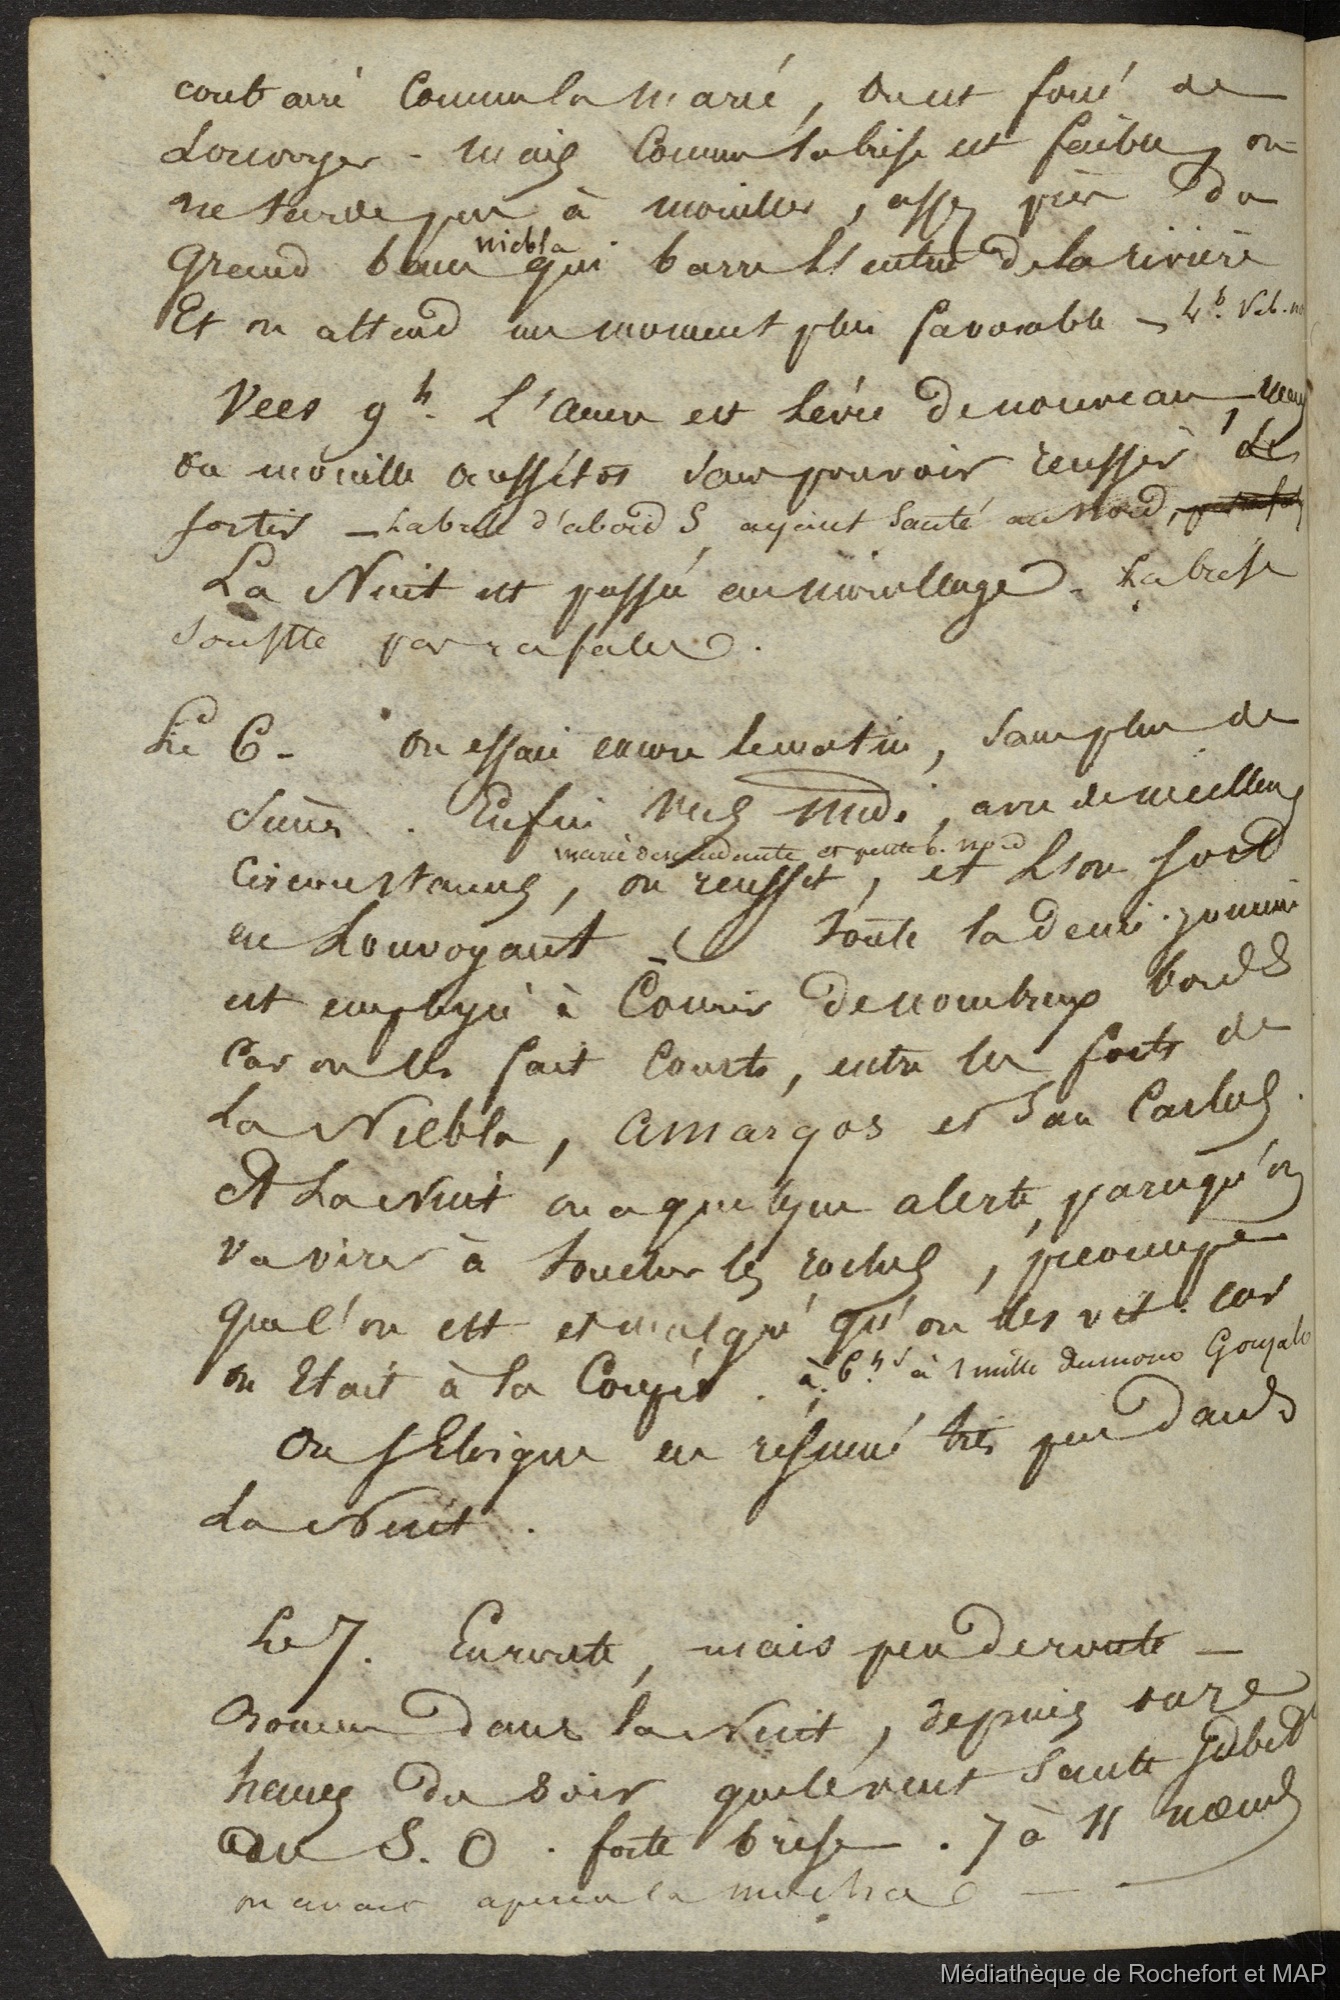 contraire comme la marée, on est forcé de
Louvoyer - mais comme la brise est faible, on
ne tarde pas à mouiller, assez près du
niebla
Grand banc qui barre l'entrée de la rivière
Et on attend un moment plus favorable -
Vers 9h. L'ancre est levée de nouveau, mais
on mouille aussitôt sans pouvoir reussir de
sortir - La brise d'abord S, ayant sauté au Nord,
La Nuit est passée au mouillage. La brise
souffle par rafales.
Le 6 - On essaie encore le matin, sans plus de
succès. Enfin vers midi, avec de meilleures
marée descendante et petite b. nord
circonstances, on reussit, et l'on sort
en Louvoyant - Toute la demi-journée
est employée à Courir de nombreux bords
car on les fait courts, entre les forts de
La Niebla, Amargos et San Carlos.
A La Nuit on a quelque alerte, parcequ'on
va virer à toucher les roches, préoccupé
que l'on est et malgré qu'on les vit. car
on Etait à la Coupée. à 6h. s à 1 mille du morro Gonzalo
On s'Eloigne en résumé très peu dans
La Nuit.
Le 7. En route, mais peu de route -
Bonne dans la Nuit, depuis onze
heures du soir que le vent saute subit
au S. O. forte brise. 7 à 11 nœuds
on avait aperçu la mocha -